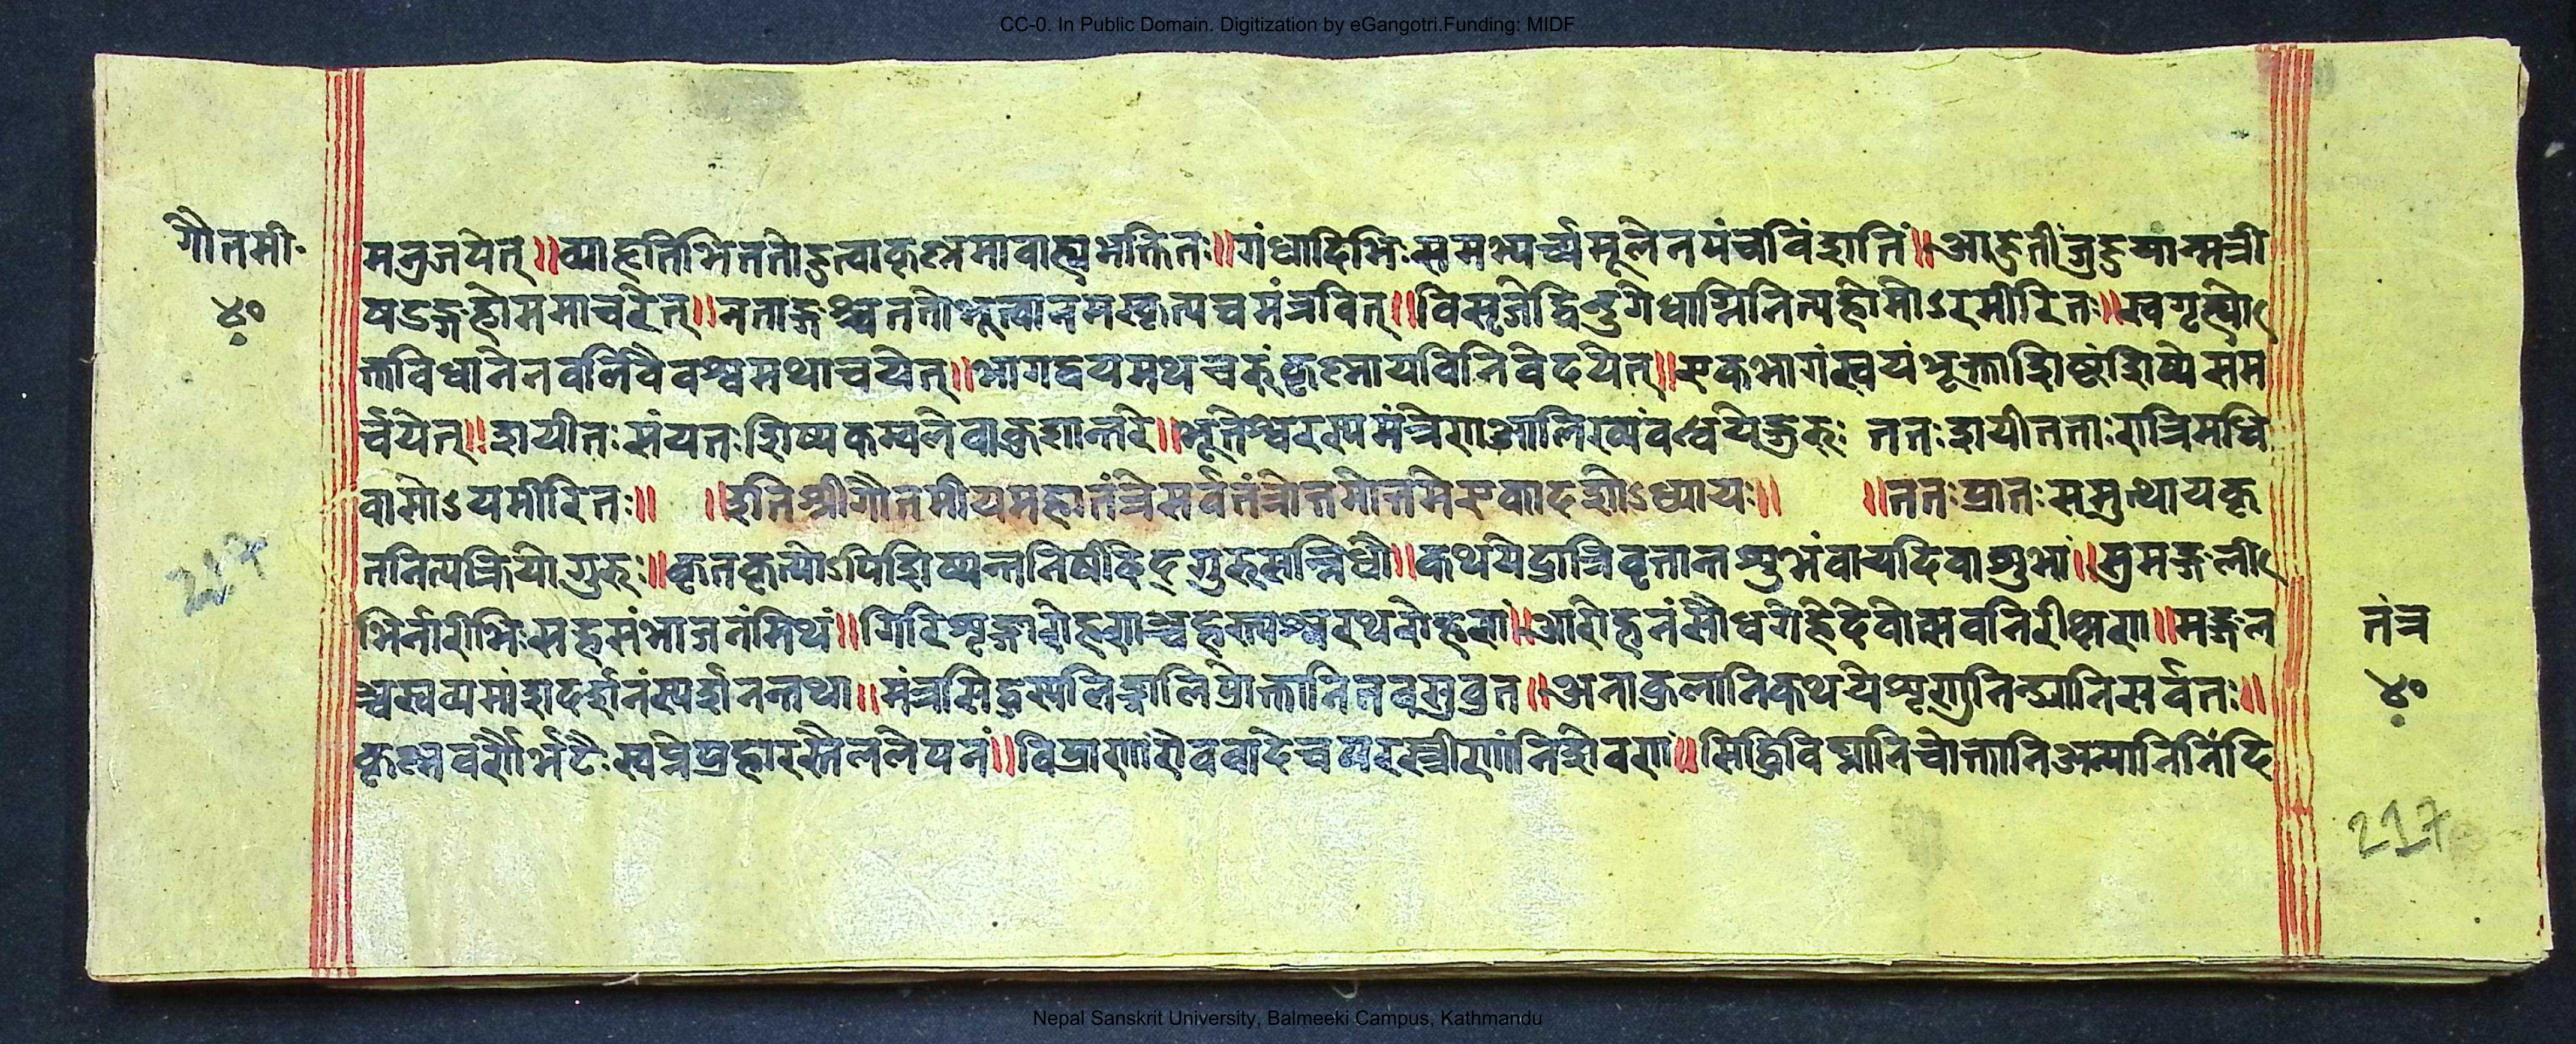 CC-0. In Public Domain. Digitization by eGangotri.Funding: MIDF
गौतमी॰
४०
मनुजपेत्॥व्याहृतिभिततोहुत्वाकृष्णमावाह्यभक्तितः॥गंधादिभिःसमभ्यर्च्यमूलेनपंचविंशतिं॥आहुतीर्जुहुयान्मन्त्री
षडङ्गहोममाचरेत्॥नताङ्गश्चततोभूत्वानमस्कृत्यचमंत्रवित्॥विसृजेद्विष्णुगेधाग्निनित्यहोमोऽरमीरितः॥स्वगृह्यो
क्तविधानेनवलिवैवश्वमथाचयेत्॥भागद्वयमथचरुंकृष्णायविनिवेदयेत्॥एकभागंस्वयंभूक्ताशिष्टंशिष्येसम
र्च्चयेत्॥शयीतःसंयतःशिष्यकम्वलेवाकुशान्तरे॥भूतेश्वरस्यमंत्रेणआलिख्यवंध्वयेद्गुरुः ततःशयीतताःरात्रिमधि
वासोऽयमीरितः॥ ॥इतिश्रीगौतमीयमहातंत्रेसर्वतंत्रोत्तमोत्तमेएकादशोऽध्यायः॥ ॥ततःप्रातःसमुत्थायकृ
तनित्यक्रियोगुरुः॥कृतकृत्योऽपिशिष्यन्तनिषेदिद्गुरुसन्निधौ॥कथयेद्रात्रिवृत्तान्तशुभंवायदिवाशुभां॥सुमङ्गली
भिर्नारीभिःसहसंभाजनंमिथं॥गिरिशृङ्गारोहणञ्चहस्त्यश्वरथरोहणां॥आरोहनंसौधगेहेदेवोत्सवनिरीक्षणा॥मङ्गल
श्चस्वव्यमांशदर्शनंस्पर्शनन्तथा॥मंत्रसिद्धस्यलिङ्गालिप्रोक्तानितवसुव्रत॥अनाकुलानिकथयेशृणुनिन्द्यानिसर्वतः॥
कृष्णवर्णैर्भटैःस्वप्नेप्रहारस्तैललेपनं॥विप्राणांरोववादेचपरस्त्रीणांनिशेवणां॥सिद्धिविघ्नानिचोक्तानिअन्यानिनिंदि
तंत्र
४०
217
217
Nepal Sanskrit University, Balmeeki Campus, Kathmandu